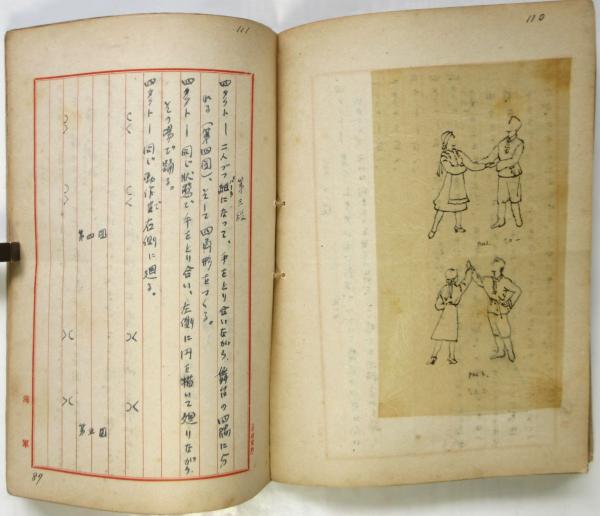 110
рис.
рис.
111
第三段
四タクトー 二人づつ組になって、手をとり合いながら、舞台の四隅に
れる(第四図)、そして四角形をつくる。
四タクト— 同じ状態で、手をとり合い、左側に円を描いて廻りながら、
その場で踊る。
四タクト— 同じ動作で右側に廻る。
第四図
第五図
海軍
89